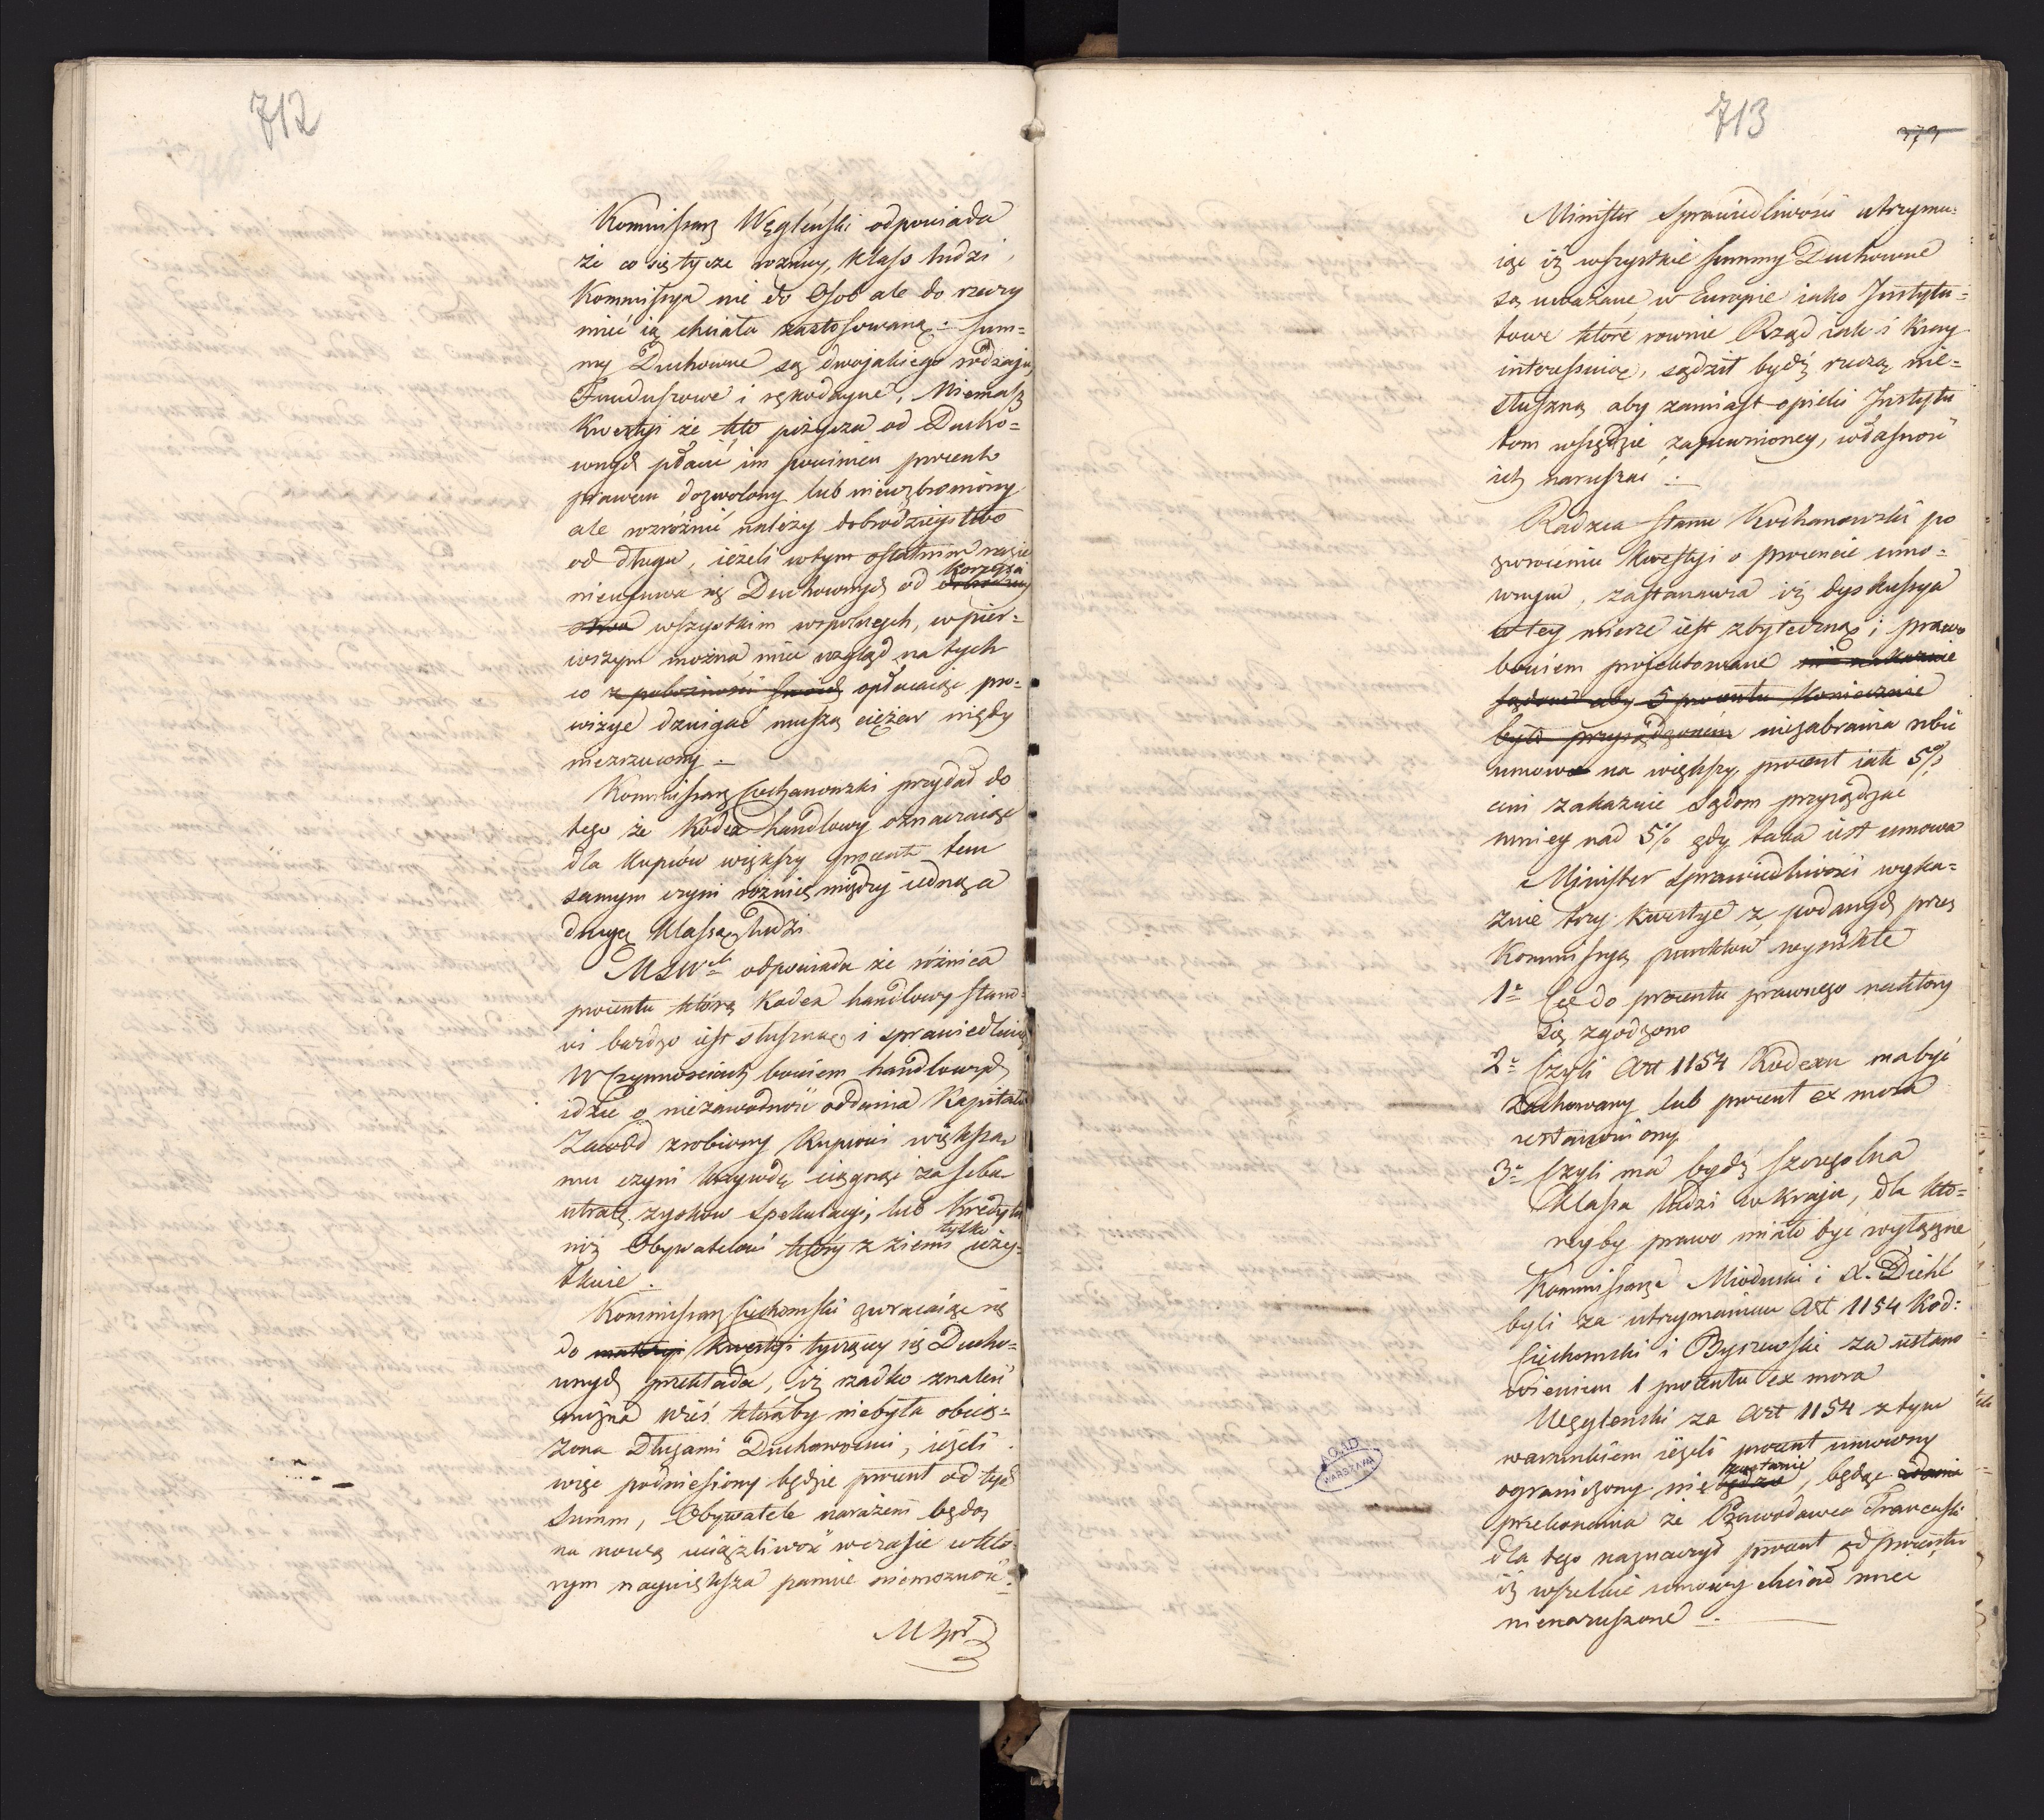 712
Kommissarz Węgleński odpowiada
że co się tycze roznicy, klass ludzi,
Kommissya nie do Osob ale do rzeczy
mieć ią chciała zastosowaną: Sum=
my Duchowne są dwojakiego rodzaju
Funduszowe i rękodayne, Niemasz
kwestyi że kto pożycza od Ducho=
wnych płacić im powinien procent
prawem dozwolony lub niewzbroniony
ale rozróżnić należy dobrodzieystwo
od długu, ieżeli w tym ostatnim razie
nieusuwa się Duchownych od korzyści
wszystkim wspolnych, w pier=
wszym można mieć wzgląd na tych
co z pobożności swoich opłacaiąc pro=
wizye dzwigać muszą ciężar nigdy
niezrzucony.
Kommissarz Ciechanowski przydał do
tego że Kodex handlowy oznaczaiąc
dla kupców większy procent tem
samym czyni różnicę między iedną a
drugą klassą ludzi.
MSWch odpowiada że różnica
procentu którą Kodex handlowy stano=
wi bardzo iest słuszną i sprawiedliwą
W Czynnościach bowiem handlowych
idzie o niezawodność oddania Kapitału
Zawód zrobiony Kupcowi większą
mu czyni krzywdę ciągnąc za sobą
utratę zyskow spekulacyi, lub kredytu
niż Obywatelowi który z ziemi tylko uży=
tkuie.
Kommissarz Ciechomski zwracaiąc się
do kwestyi tyczącey się Ducho=
wnych przekłada, iż rzadko znaleść
można wieś któraby niebyła obcią=
żona Długami Duchownemi, ieżeli
więc podniesiony będzie procent od tych
Summ, Obywatele narażeni będą
na nową uciążliwość w czasie w któ=
rym naywiększa panuie niemożność.
M Spr
713
373
Minister Sprawiedliwości utrzymu=
iąc iż wszystkie Summy Duchowne
są uważane w Europie iako Instytu=
towe które rownie Rząd iak i Kray
interessuią, sądził bydź rzeczą nie=
słuszną aby zamiast opieki Instytu
tom wszędzie zapewnioney, własność
ich naruszać.
Radzca Stanu Kochanowski po
zwroceniu kwestyi o procencie umo=
wnym, zastanawia iż dyskussya
w tey mierze iest zbyteczną, prawo
bowiem proiektowane nie nakazuie
sądowi aby 5 procentu koniecznie
było przysądzonem niezabrania robić
umowe na większy procent iak 5%
ani zakazuie Sądom przysądzać
mniey nad 5% gdy taka iest umowa
Minister Sprawiedliwości wyka=
zuie trzy kwestye z podanych przez
Kommissyą punktów wynikłe
1o Co do procentu prawnego na który
się zgodzono
2o Czyli Art 1154 Kodexu ma być
zachowany lub procent ex mora
ustanowiony
3o Czyli ma bydź szczegolna
klassa ludzi w kraju, dla któ=
reyby prawo miało być wyłączne
Kommissarze Mioduski i X. Diehl
byli za utrzymaniem Art 1154 Kod:
Ciechomski i Byszewski za ustano
wieniem 1 procentu ex mora
Węgleński za Art 1154 z tym
warunkiem ieżeli procent umowny
ograniczony nie zostanie, będąc
przekonania że Prawodawca Francuski
dla tego naznaczył procent od procentu
iż wszelkie umowy chciał mieć
nienaruszone.
AGAD
WARSZAWA